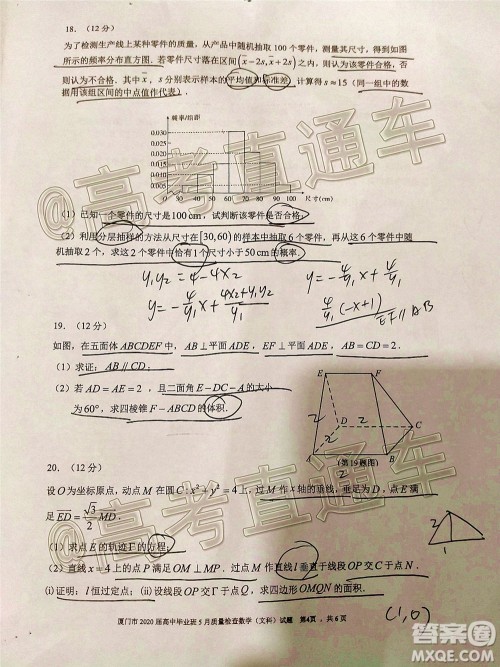 18. (12分)
为了检测生产线上某种零件的质量，从产品中随机抽取100个零件，测量其尺寸，得到如图
所示的频率分布直方图．若零件尺寸落在区间(x̄−2s, x̄+2s)之内，则认为该零件合格，否
则认为不合格．其中x̄，s分别表示样本的平均值和标准差，计算得s≈15（同一组中的
数据用该组区间的中点值作代表）．
频率/组距
0.030
0.025
0.020
0.015
0.010
0.005
尺寸(cm)
（1）已知一个零件的尺寸是100cm，试判断该零件是否合格；
（2）利用分层抽样的方法从尺寸在[30,60)的样本中抽取6个零件，再从这6个零件中随
机抽取2个，求这2个零件中恰有1个尺寸小于50cm的概率．
19. (12分)
如图，在五面体ABCDEF中，AB⊥平面ADE，EF⊥平面ADE，AB=CD=2．
（1）求证：AB∥CD；
（2）若AD=AE=2，且二面角E−DC−A的大小
为60°，求四棱锥F−ABCD的体积．
E F
D C
A B
(第19题图)
20. (12分)
设O为坐标原点，动点M在圆C:x²+y²=4上，过M作x轴的垂线，垂足为D，点E满
足ED=√3/2 MD．
（1）求点E的轨迹Γ的方程；
（2）直线x=4上的点P满足OM⊥MP．过点M作直线l垂直于线段OP交C于点N．
(i)证明：l恒过定点；(ii)设线段OP交Γ于点Q，求四边形OMQN的面积．
(1,0)
厦门市2020届高中毕业班5月质量检查数学（文科）试题 第4页，共6页
@高考直通车
@高考直通车
答案圈
MXQE.COM